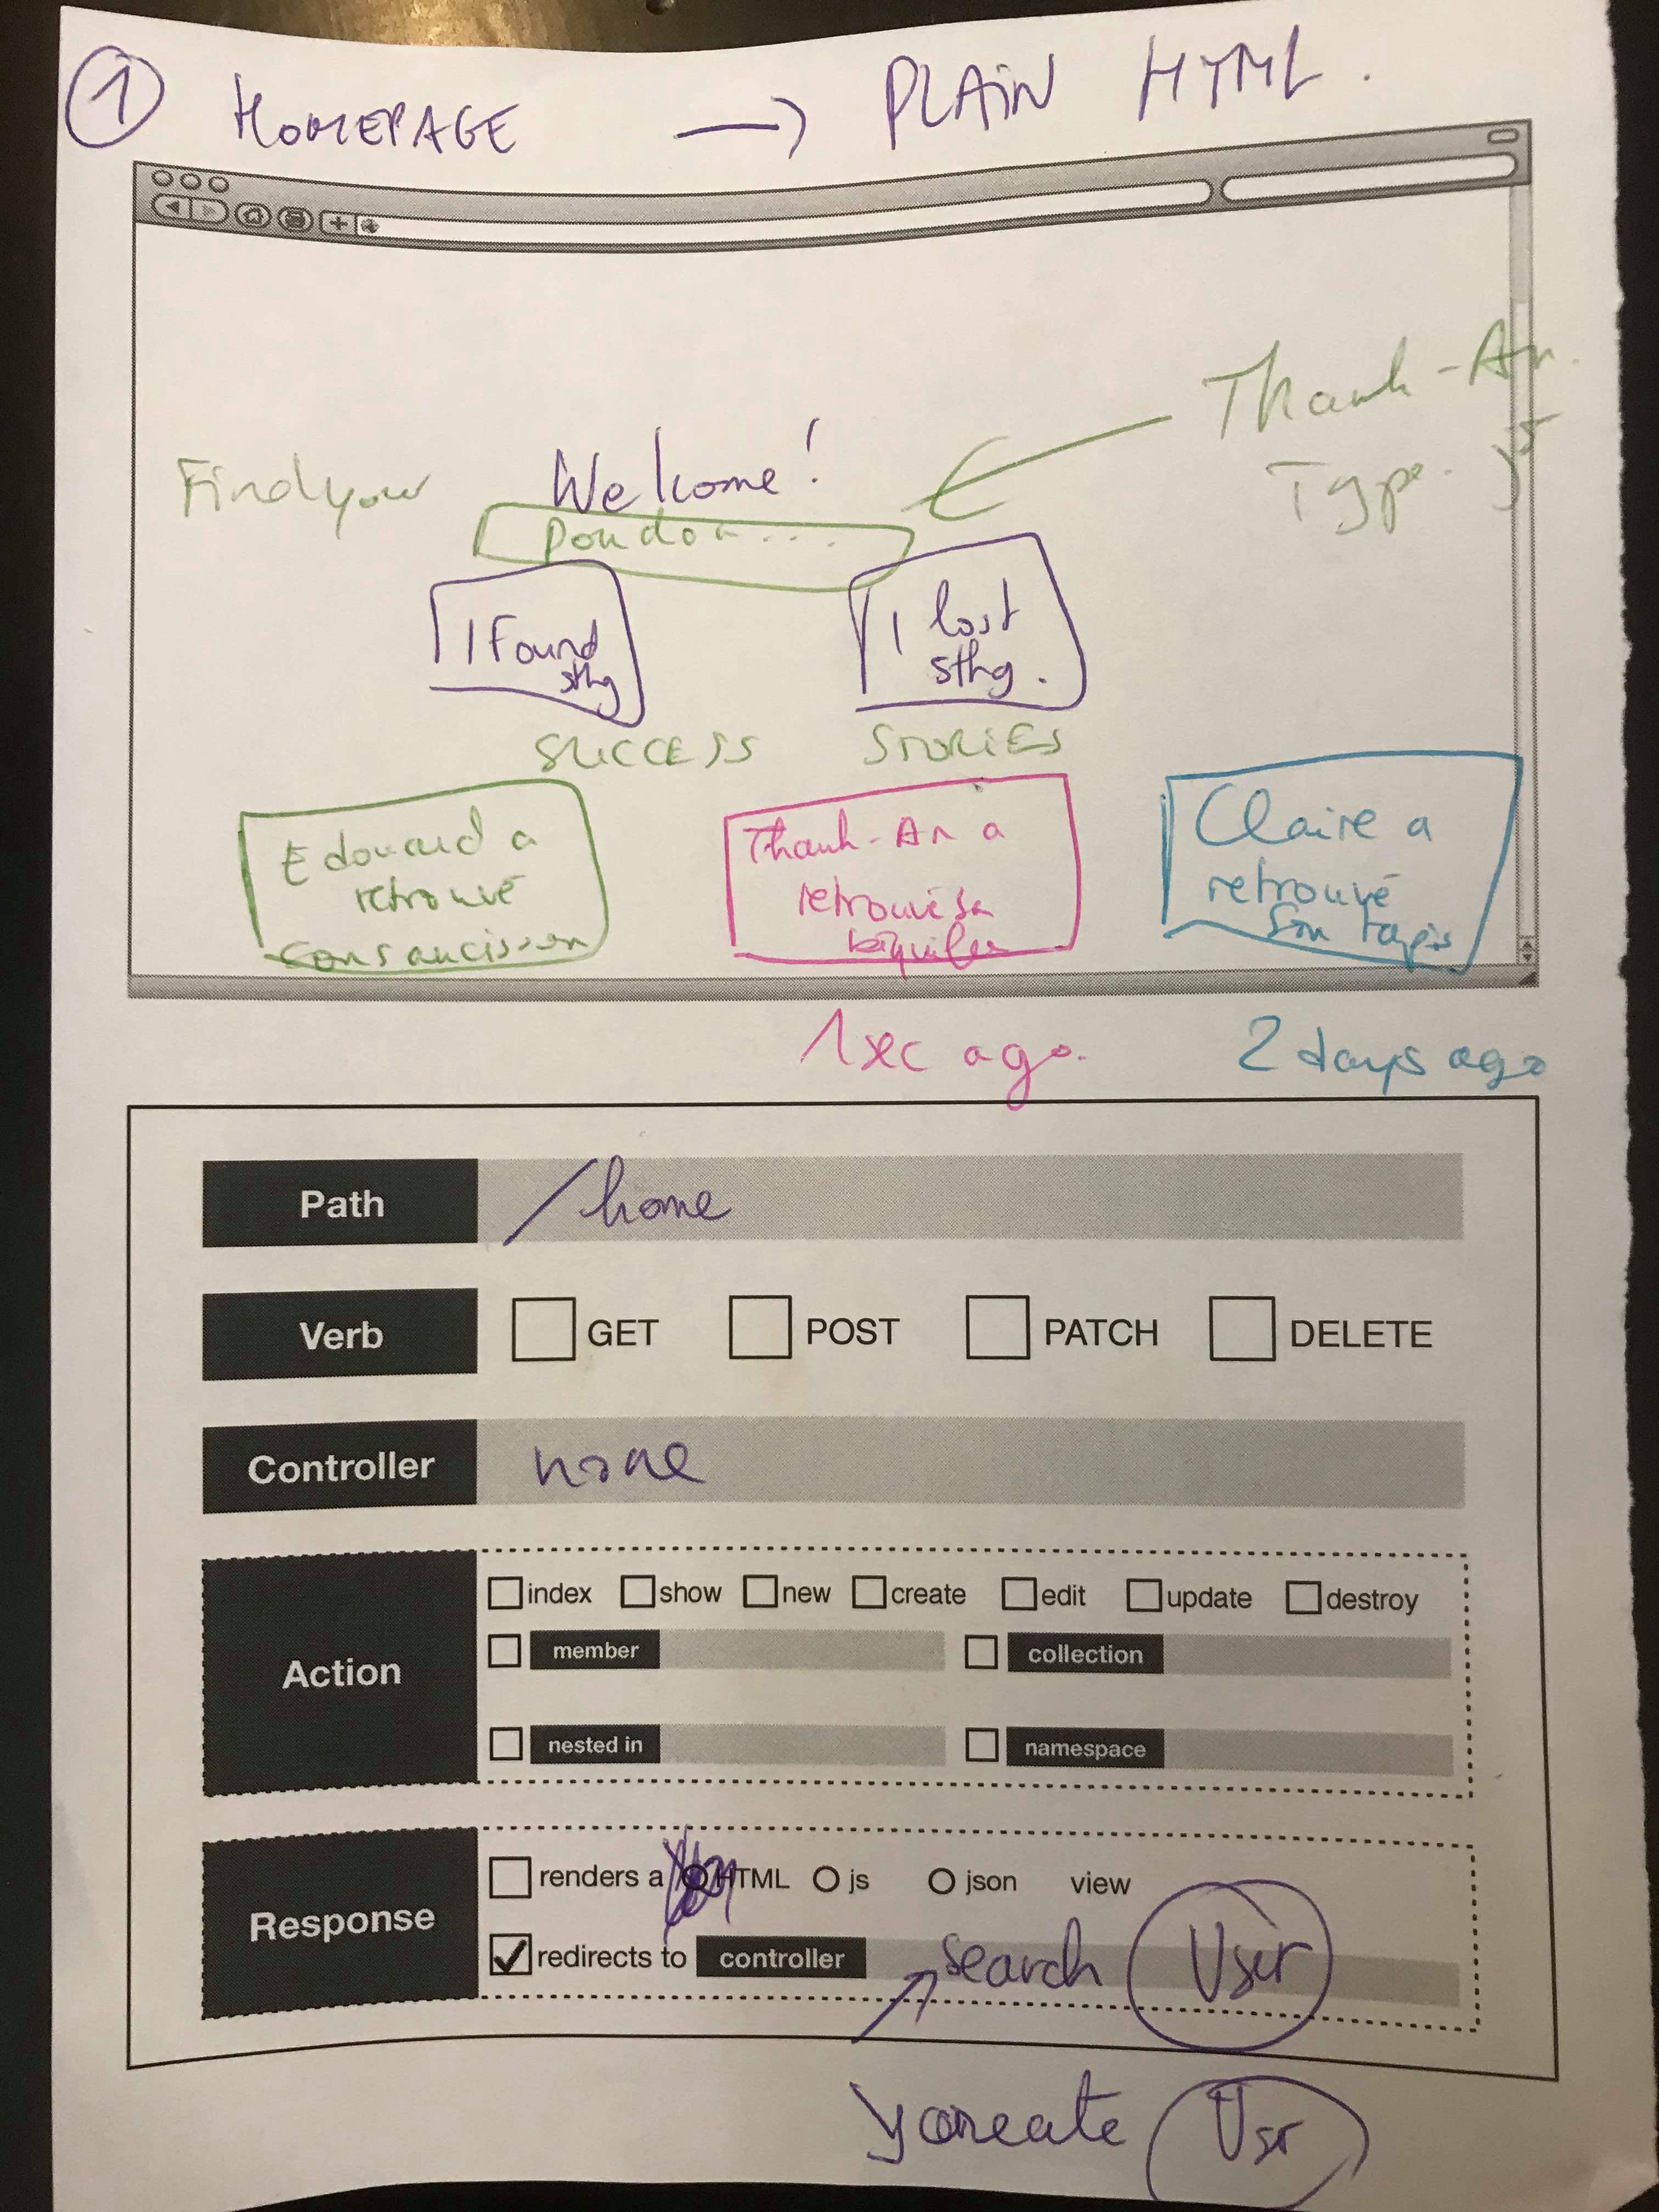 1 HOMEPAGE → PLAIN HTML.
Thanh-An.
Type. js
Find your Welcome!
doudou...
I Found
sthg
I lost
sthg.
SUCCESS STORIES
Edouard a
retrouvé
Thanh-An a
retrouvé sa
béquille
Claire a
retrouvé
son tapis
1 sec ago.
2 days ago
Path /home
Verb GET POST PATCH DELETE
Controller none
Action
index show new create edit update destroy
member collection
nested in namespace
Response
renders a HTML js json view
redirects to controller search User
create User